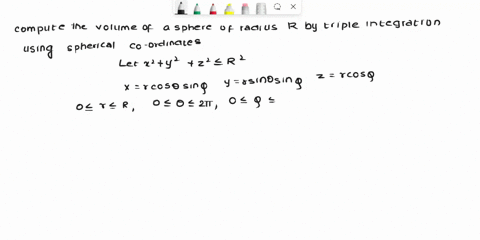 compute the volume of a sphere of radius R by triple integration
using spherical co-ordinates
Let x² + y² + z² ≤ R²
x = r cosθ sinφ y = r sinθ sinφ z = r cosφ
0 ≤ r ≤ R, 0 ≤ θ ≤ 2π, 0 ≤ φ ≤